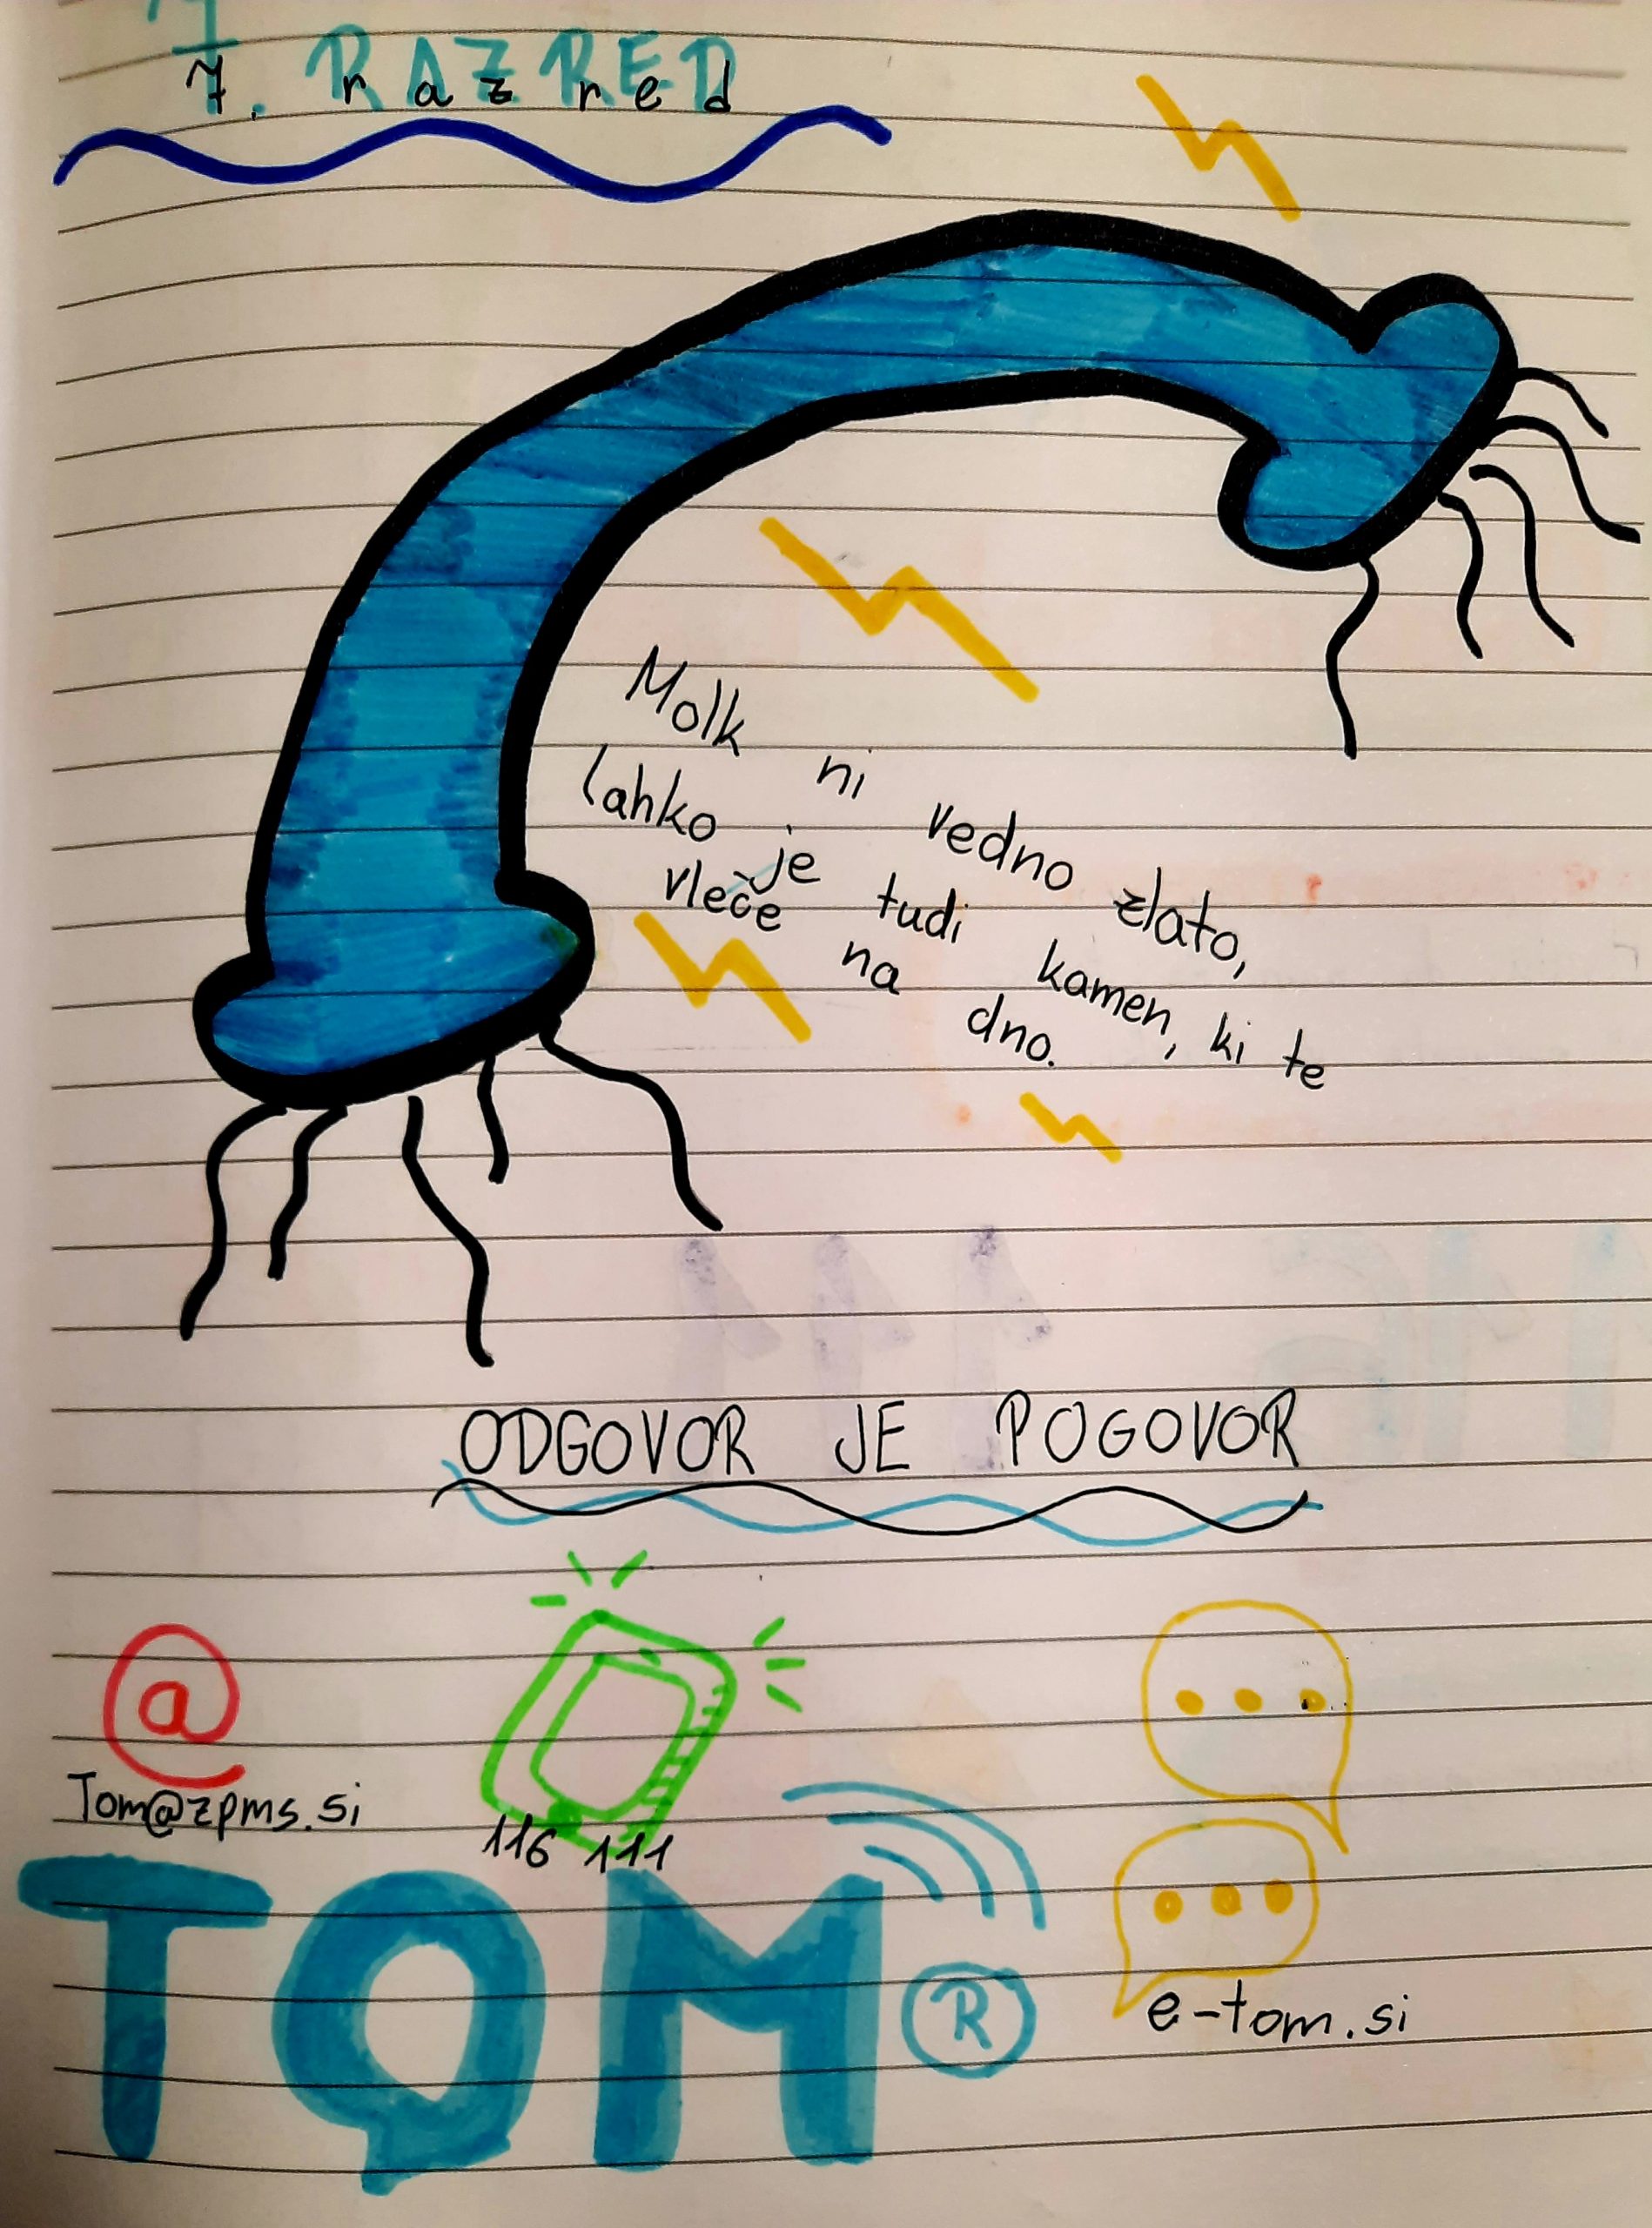 7. RAZRED
7. razred
Molk ni vedno zlato,
lahko je tudi kamen, ki te
vleče na dno.
ODGOVOR JE POGOVOR
@
Tom@zpms.si
116 111
TOM®
e-tom.si